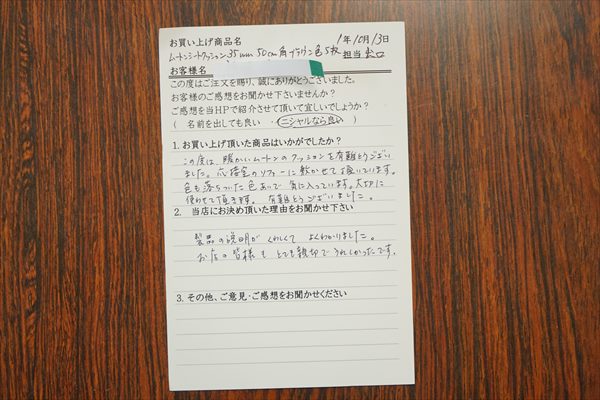 お買い上げ商品名
1年10月13日
ムートンシートクッション35mm 50cm角ブラウン色5枚
担当
お客様名
この度はご注文を賜り、誠にありがとうございました。
お客様のご感想をお聞かせ下さいませんか？
ご感想を当HPで紹介させて頂いて宜しいでしょうか？
( 名前を出しても良い ・ イニシャルなら良い )
1. お買い上げ頂いた商品はいかがでしたか？
この度は、暖かいムートンのクッションを有難とうござい
ました。応接室のソファーに敷かせて頂いています。
色も落ちついた色あいで 気に入っています。大切に
使わせて頂きます。 有難とうございました。
2. 当店にお決め頂いた理由をお聞かせ下さい
製品の説明が くわしくて よくわかりました。
お店の皆様も とても親切でうれしかったです。
3. その他、ご意見・ご感想をお聞かせください